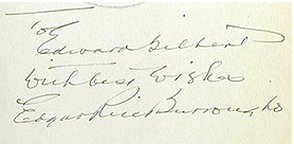 To
Edward Gilbert
With best wishes
Edgar Rice Burroughs